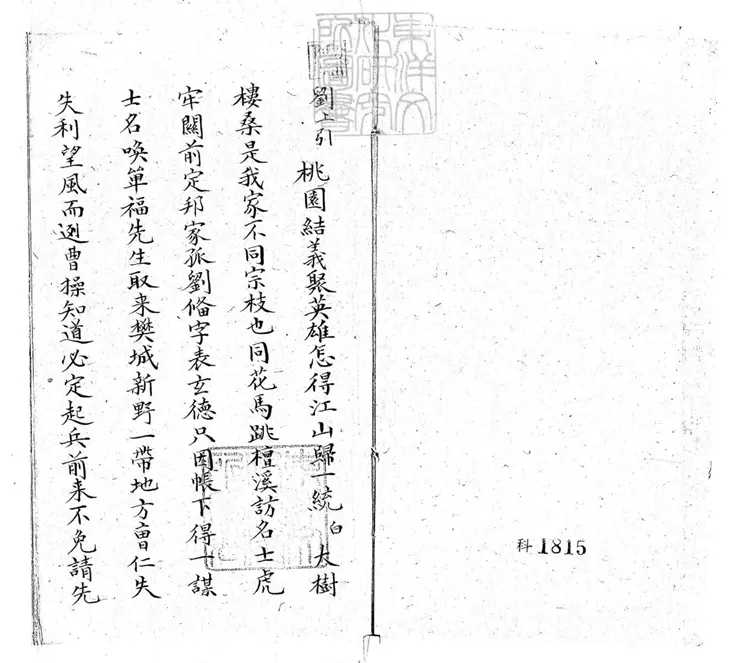 劉上引 桃園結義聚英雄怎得江山歸一統 白 大樹
樓桑是我家不同宗枝也同花馬跳檀溪訪名士虎
牢關前定邦家孤劉俻字表玄德只因帳下得一謀
士名喚單福先生取来樊城新野一帶地方曹仁失
失利望風而迯曹操知道必定起兵前来不免請先
科 1815